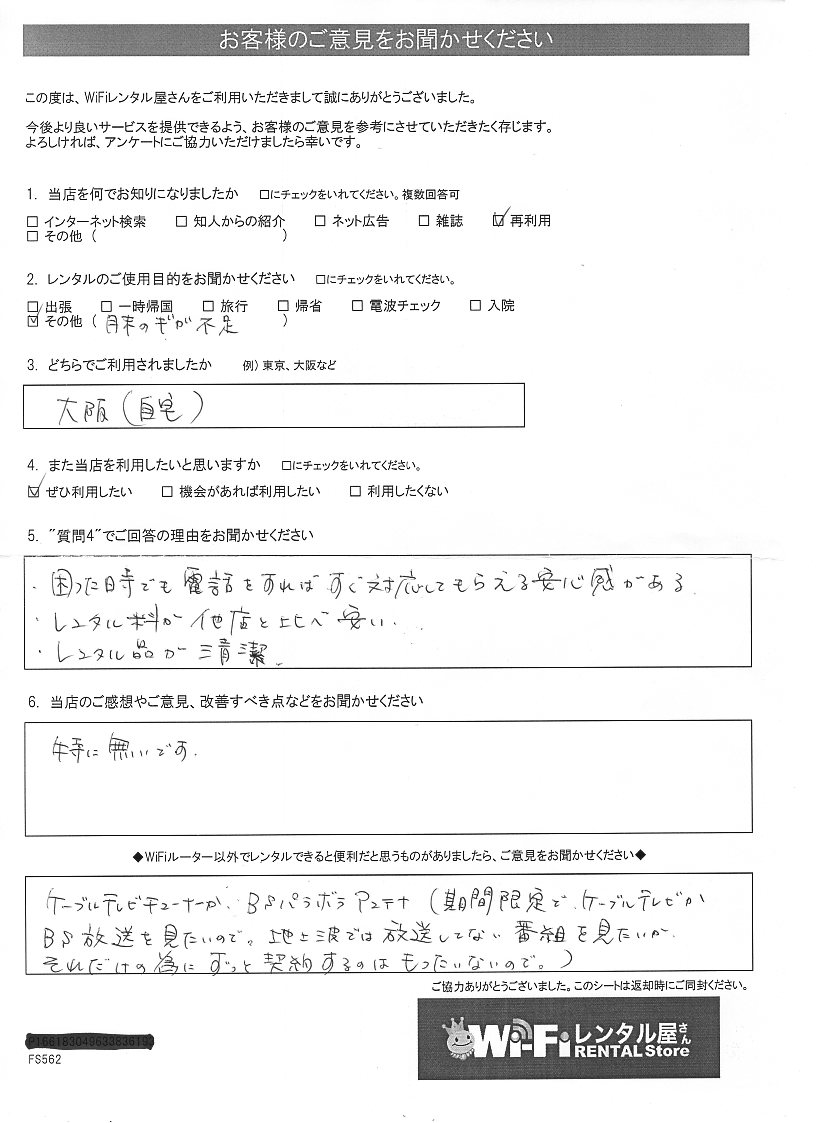 お客様のご意見をお聞かせください
この度は、WiFiレンタル屋さんをご利用いただきまして誠にありがとうございました。
今後より良いサービスを提供できるよう、お客様のご意見を参考にさせていただきたく存じます。
よろしければ、アンケートにご協力いただけましたら幸いです。
1. 当店を何でお知りになりましたか □にチェックをいれてください。複数回答可
□ インターネット検索 □ 知人からの紹介 □ ネット広告 □ 雑誌 ☑ 再利用
□ その他 ( )
2. レンタルのご使用目的をお聞かせください □にチェックをいれてください。
□ 出張 □ 一時帰国 □ 旅行 □ 帰省 □ 電波チェック □ 入院
☑ その他 ( 月末のギガ不足 )
3. どちらでご利用されましたか 例) 東京、大阪など
大阪(自宅)
4. また当店を利用したいと思いますか □にチェックをいれてください。
☑ ぜひ利用したい □ 機会があれば利用したい □ 利用したくない
5. "質問4"でご回答の理由をお聞かせください
・困った時でも電話をすればすぐ対応してもらえる安心感がある.
・レンタル料が他店と比べ安い.
・レンタル品が清潔.
6. 当店のご感想やご意見、改善すべき点などをお聞かせください
特に無いです.
◆WiFiルーター以外でレンタルできると便利だと思うものがありましたら、ご意見をお聞かせください◆
ケーブルテレビチューナーか、BSパラボラアンテナ (期間限定で、ケーブルテレビか
BS放送を見たいので。地上波では放送してない番組を見たいが、
それだけの為にずっと契約するのはもったいないので。)
ご協力ありがとうございました。このシートは返却時にご同封ください。
Wi-Fiレンタル屋さん
RENTAL Store
FS562